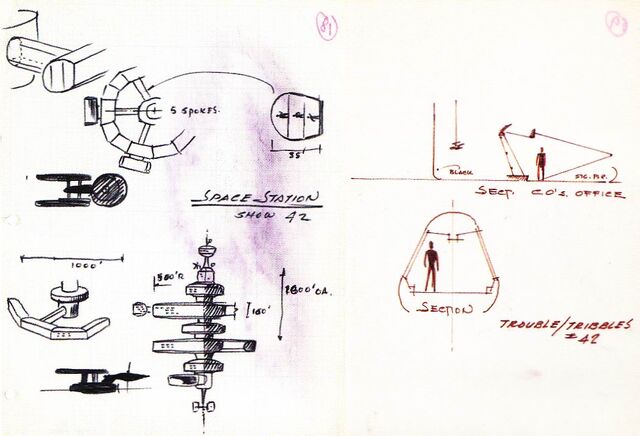 81
5 SPOKES.
35'
SPACE STATION
SHOW 42
1000'
500'R
160'
1800'OA.
BLACK
SECT. CO'S. OFFICE
(SECTION)
TROUBLE/TRIBBLES
#42